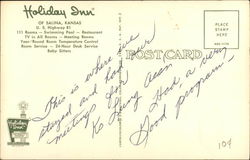 Holiday Inn
OF SALINA, KANSAS
U. S. Highway 81
111 Rooms — Swimming Pool — Restaurant
TV in All Rooms — Meeting Rooms
Year-Round Room Temperature Control
Room Service — 24-Hour Desk Service
Baby Sitters
POST CARD
PLACE
STAMP
HERE
This is where we
stayed and had our
meetings for
Ks Nursing Assn
Had a very
Good program,
104